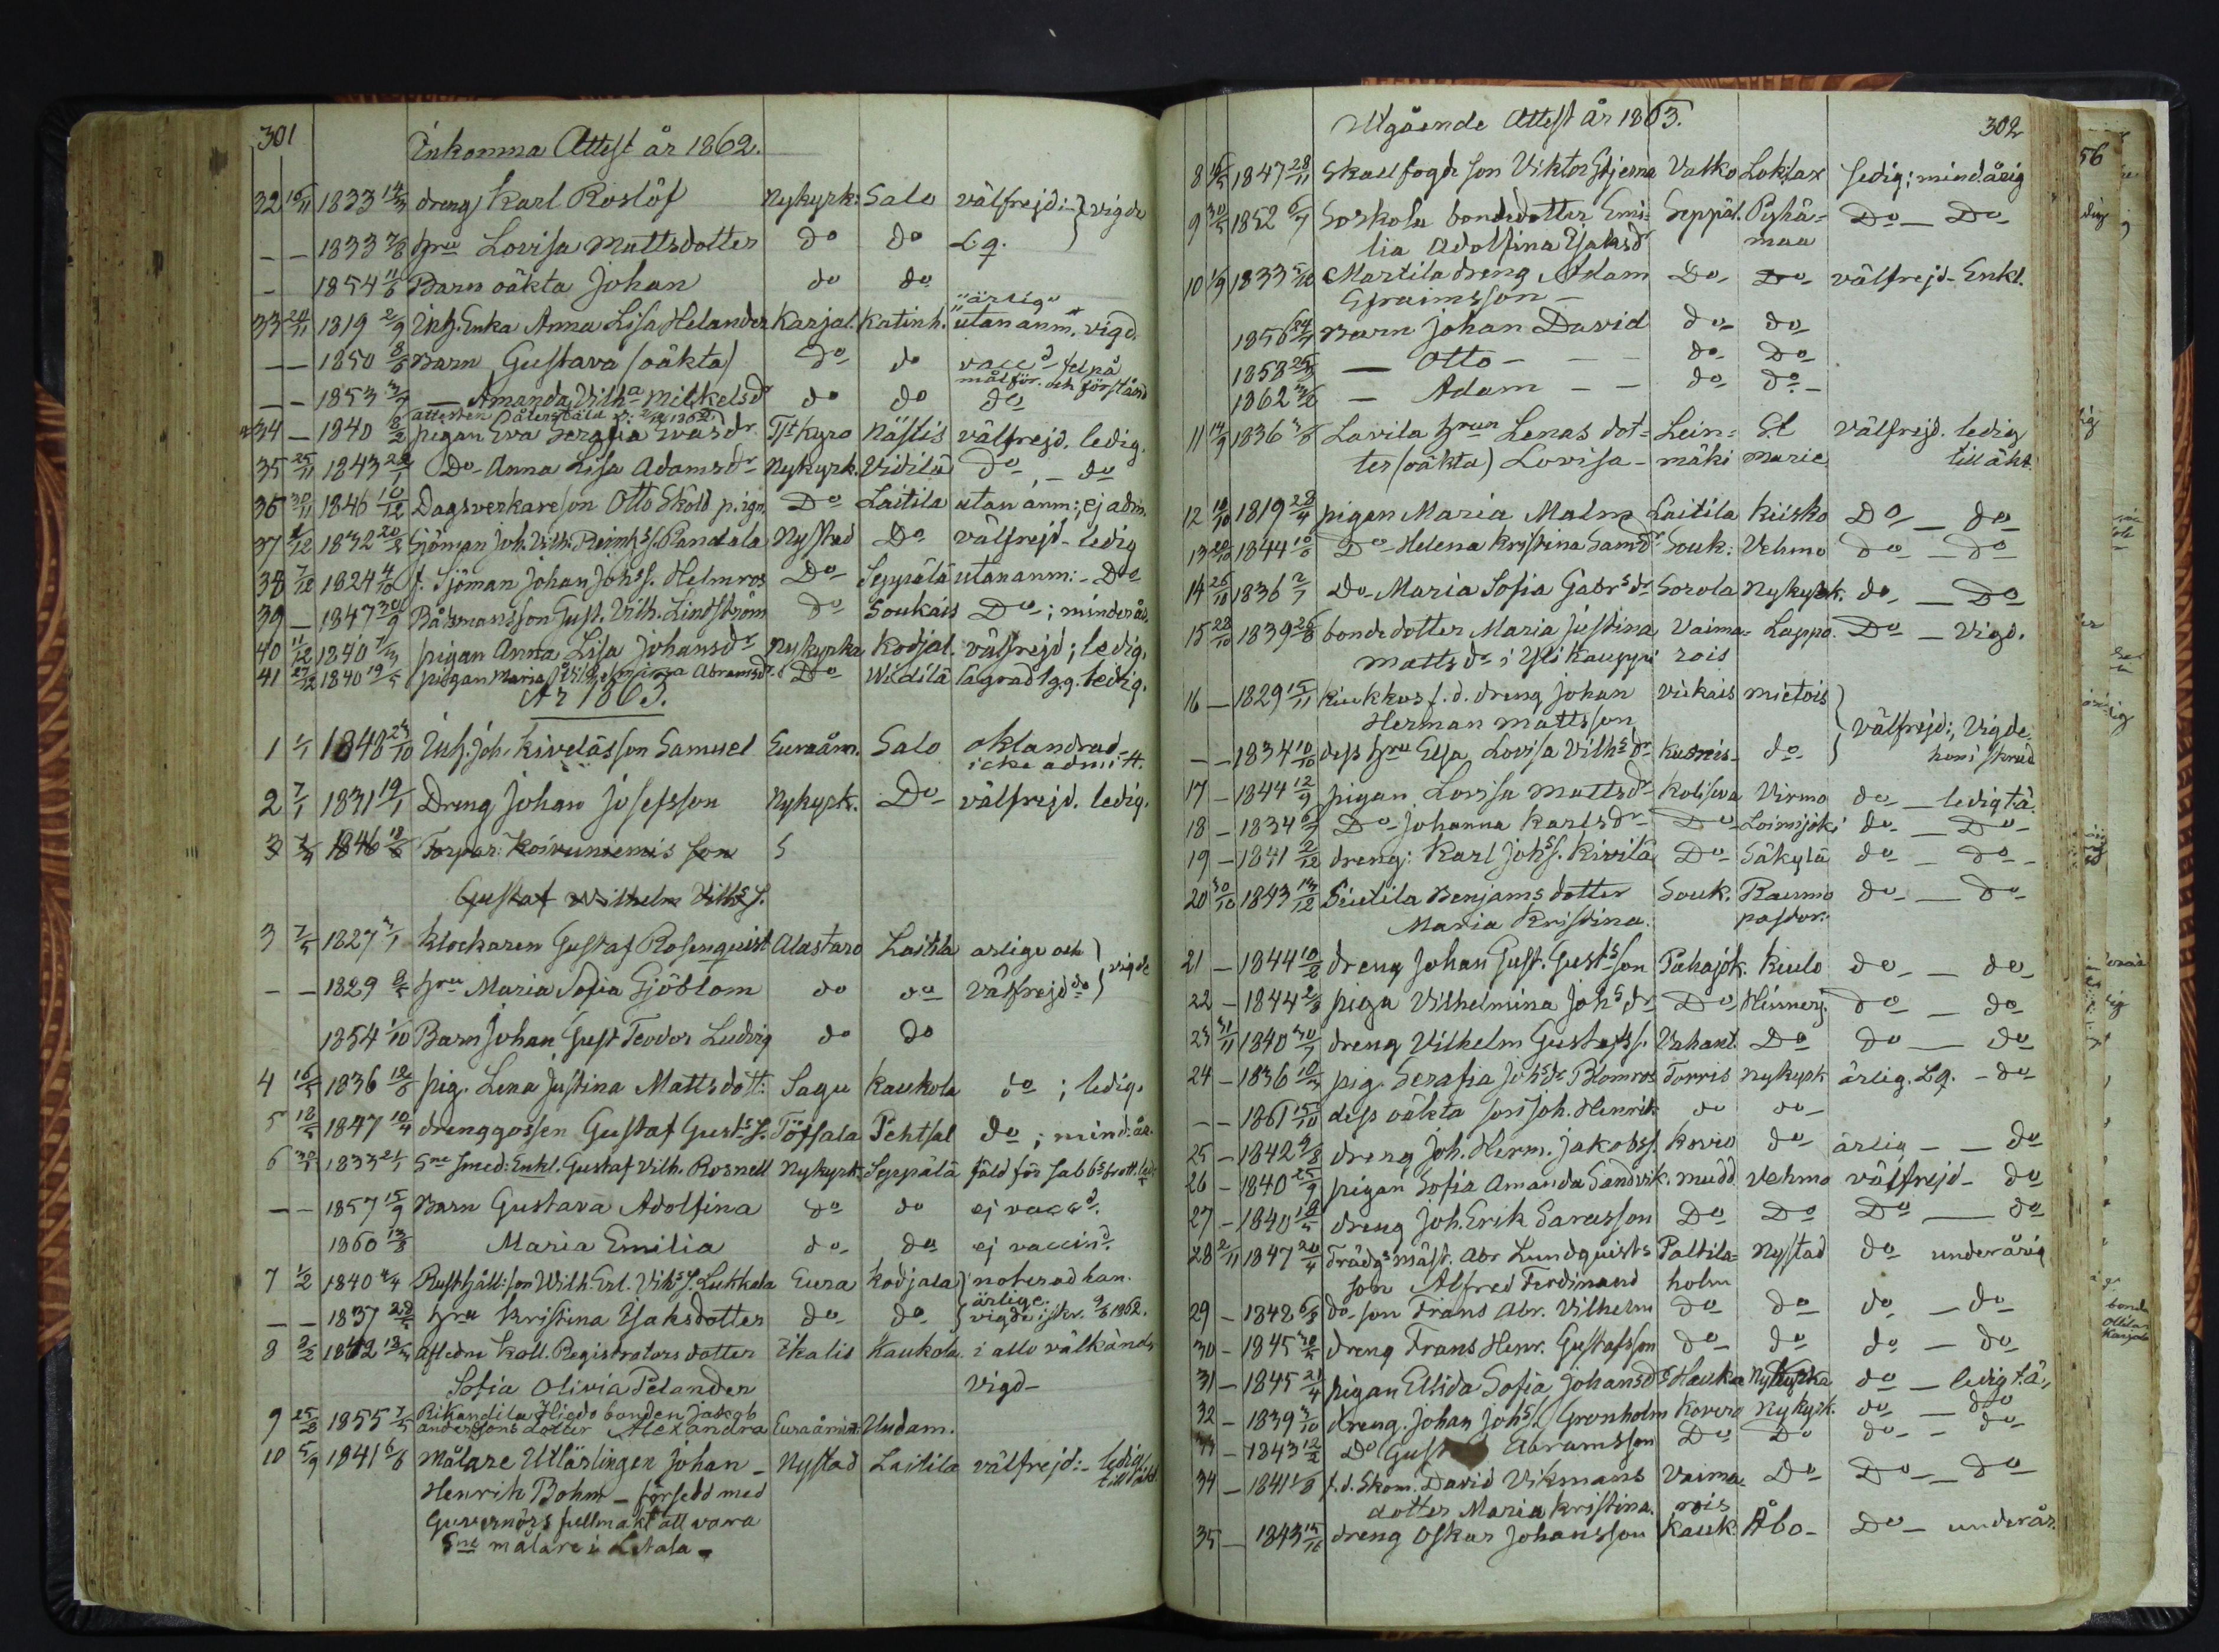 301
Inkomna Attest år 1862.
32 16/11 1833 14/3 dreng Karl Roslöf Nykyrk: Salo välfrejd:- } vigde
— — 1833 7/8 hru Lovisa Mattsdotter do do Lq.
— 1854 11/6 Barn oäkta Johan do do
"ärlig"
33 24/11 1819 2/9 Inh. Enka Anna Lisa Helander Karjal. Katinh. utan anm. vigd.
— — 1850 8/6 Barn Gustava (oäkta) do do vacc:d fel på
målför. och förstånd
— — 1853 3/7 — Amanda Vilha Mikkelsdr do do do
attesten återstäld
34 — 1840 8/2 pigan Eva Serafia Evasdr Tst Kyro Nästis välfrejd. ledig.
35 25/11 1843 28/7 Do Anna Lisa Adamsdr Nykyrk. Vidilä do — do
36 30/11 1846 10/12 Dagsverkareson Otto Sköld p. ign. Do Laitila utan anm:; ej adm.
37 6/12 1832 20/3 Sjöman Joh. Vilh. Randala Nystad Do välfrejd - ledig
38 7/12 1824 4/10 f. Sjöman Johan Johss. Helmros Do Seppälä utan anm:- Do
39 — 1847 30/9 Båtsmansson Gust. Vilh. Lindström do Soukais Do; minderår.
40 11/12 1840 7/3 pigan Anna Lisa Johansdr Nykyrka Kodjal. välfrejd; ledig.
41 27/12 1840 19/5 pigan Maria Vilhelmina Abramsdr. Do Widilä lagrad lg.g. ledig.
År 1863.
1 1/1 1848 23/10 Inh. Joh. Kiveläs son Samuel Euraåm. Salo oklandrad-
icke admitt.
2 7/1 1831 19/1 Dreng Johan Josefsson Nykyrk. Do välfrejd. ledig.
3 7/5 1846 18/6 Torpar: Koivuniemis son S
Gustaf Wilhelm Vilhs S.
3 7/5 1827 3/1 Klockaren Gustaf Rosenquist Alastaro Laitila ärlige och } vigde
— — 1829 8/5 hru Maria Sofia Sjöblom do do välfrejd do
1854 1/10 Barn Johan Gust Teodor Ludvig do do
4 16/5 1836 12/8 pig. Lena Justina Mattsdott: Sagu Kaukola do ; ledig.
5 18/5 1847 10/4 drenggossen Gustaf Gusts S. Töfsala Pehtsal do ; mind:år.
6 30/5 1833 21/1 Sne smed: Enkl. Gustaf Vilh. Rosnell Nykyrk. Seppälä fäld för sab:s brott. led
— — 1857 15/9 Barn Gustava Adolfina do do ej vacc:d.
1860 13/8 Maria Emilia do do ej vaccin:d
7 1/2 1840 4/4 Rusthåll:son Wilh. Erl. Vihs S. Lukkala Eura Kodjala } noterad han.
ärlige.
— — 1837 28/5 hru Kristina Isaksdotter do do } vigde i skr. 1862.
8 3/2 1842 18/3 afledne Koll. Registrators dotter Ikalis Kaukola i allo välkänd,
Sofia Olivia Pelander vigd-
9 25/8 1855 7/5 Rikandila Hiedo bonden Jakob
Anderssons dotter Alexandra Euraåmin: Undam.
10 5/9 1841 6/6 målare Utlärlingen Johan — Nystad Laitila välfrejd:- ledig
till äkt
Henrik Bohm — försedd med
Guvernörs fullmakt att vara
Sne målare i Letala —
Utgående Attest år 1863.
302
8 16/5 1847 28/11 Skallfogde son Viktor Stjerna Valko Loklax ledig; mind.årig
9 30/5 1852 6/7 Soskola bondedotter Emi= Seppäl. Pyhä= Do — Do
lia Adolfina Isaksdr maa
10 1/9 1833 5/10 Martila dreng Adam Do Do välfrejd- Enkl.
Efraimsson —
1856 24/7 Barn Johan David do do
1858 25/3 — Otto — do Do
1862 3/6 — Adam — — do do -
11 14/9 1836 3/6 Lavila hrun Lenas dot= Lein= St välfrejd. ledig
ter (oäkta) Lovisa — mäki Marie till äkt.
12 10/10 1819 28/4 pigan Maria Malm Laitila Kiisko Do — do
13 20/10 1844 10/6 Do Helena Kristina Samdr Souk: Vehmo do — do
14 26/10 1836 2/7 do Maria Sofia Gabrsdr Sorola Nykyrk. do — Do
15 28/10 1839 26/8 bondedotter Maria Justina Vaima= Lappo. Do — Vigd.
Mattsdr i Yli Kauppi rois
16 — 1829 15/11 Kiukkus f.d. dreng Johan Viikais Mietois }
Herman Mattsson välfrejd:, Vigde
— — 1834 10/10 dess hru Elsa Lovisa Vilhsdr Kusnis do } hon i skrud
17 — 1844 12/9 pigan Lovisa Mattsdr Koliseva Virmo do — ledig t.ä.
18 — 1834 6/7 Do Johanna Karlsdr Do Loimijoki do — Do
19 — 1841 2/12 dreng: Karl Johs S. Kivilä Do Säkylä do — do
20 30/10 1843 13/12 Siutila Benjams dotter Souk. Raumo do — do
Maria Kristina. pastor.
21 — 1844 10/2 dreng Johan Gust. Gustsson Pahajok. Kiulo do — do
22 — 1844 2/8 piga Vilhelmina Johsdr Do Hinnerj. do — do
23 1840 30/7 dreng Vilhelm Gustafss. Vahant. Do do — do
24 — 1836 10/3 pig. Serafia Johsdr Blomros Torris Nykyrk ärlig. Lq. - do
— — 1861 15/10 dess oäkta son Joh. Henrik do do
25 — 1842 9/8 dreng Joh. Herm. Jakobss. do ärlig — — do
26 — 1840 25/9 pigan Sofia Amanda Sandvik. Mudd Vehmo välfrejd - do
27 — 1840 18/5 dreng Joh. Erik Sarasson Do Do Do — do
28 2/11 1847 20/4 Trädgsmäst. Abr Lundquists Paltila= Nystad do underårig
son Alfred Ferdinand holm
29 — 1848 6/8 do son Frans Abr. Vilhelm do do do — do
30 — 1845 30/5 dreng Frans Henr. Gustafsson do do do — do
31 — 1845 21/4 pigan Ellida Sofia Johansdr Heuka Nykyrka do — ledig t.ä.
32 — 1839 3/10 dreng. Johan Johs S. Grönholm Kovero Nykyrk. do — do
33 — 1843 12/2 Do Gust Abramsson Do Do do — do
34 — 1841 1/8 f.d. Skom. David Vikmans Vaima- Do Do — do
dotter Maria Kristina. rois
35 — 1843 15/10 dreng Oskar Johansson Kauk Åbo- Do - underår.
56